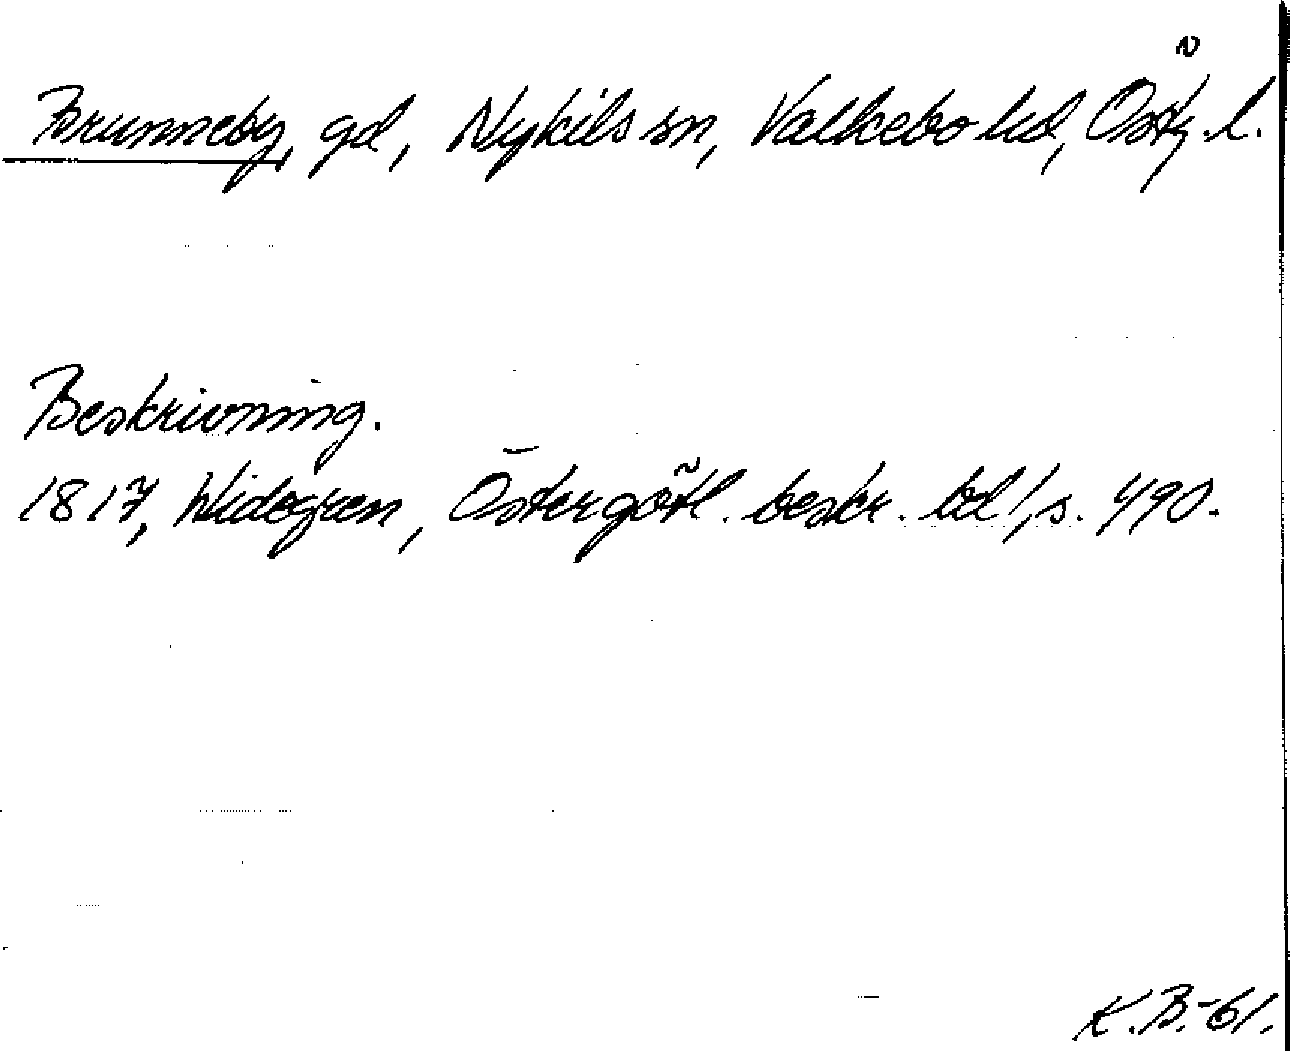 Brunneby, gd, Nykils sn, Valkebo hd, Östg. l.
Beskrivning.
1817, Widegren, Östergötl. beskr. bd 1, s. 490.
K.B.-61.